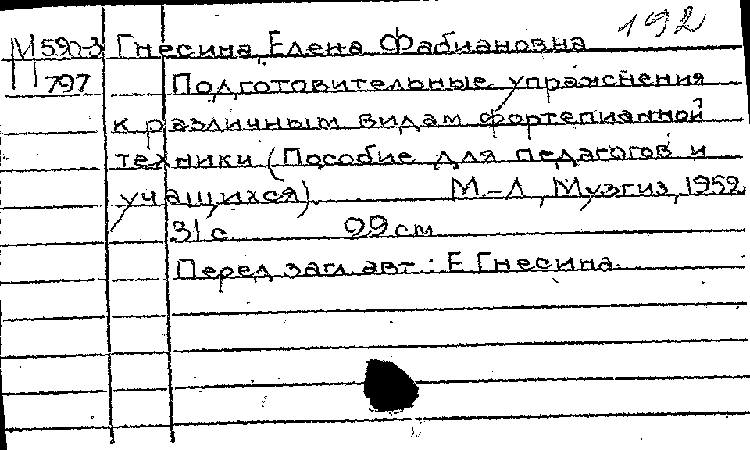 192
М590-3 Гнесина, Елена Фабиановна
П 797 Подготовительные упражнения
к различным видам фортепианной
техники (Пособие для педагогов и
учащихся). М-Л, Музгиз, 1952
31 с. 29 см
Перед загл. авт.: Е. Гнесина.